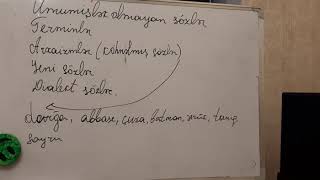 Ümumişlək olmayan sözlər
Terminlər
Arxaizmlər (köhnəlmiş sözlər)
Yeni sözlər
Dialekt sözlər.
dəvriqə, abbası, çuxa, batman,
sayru